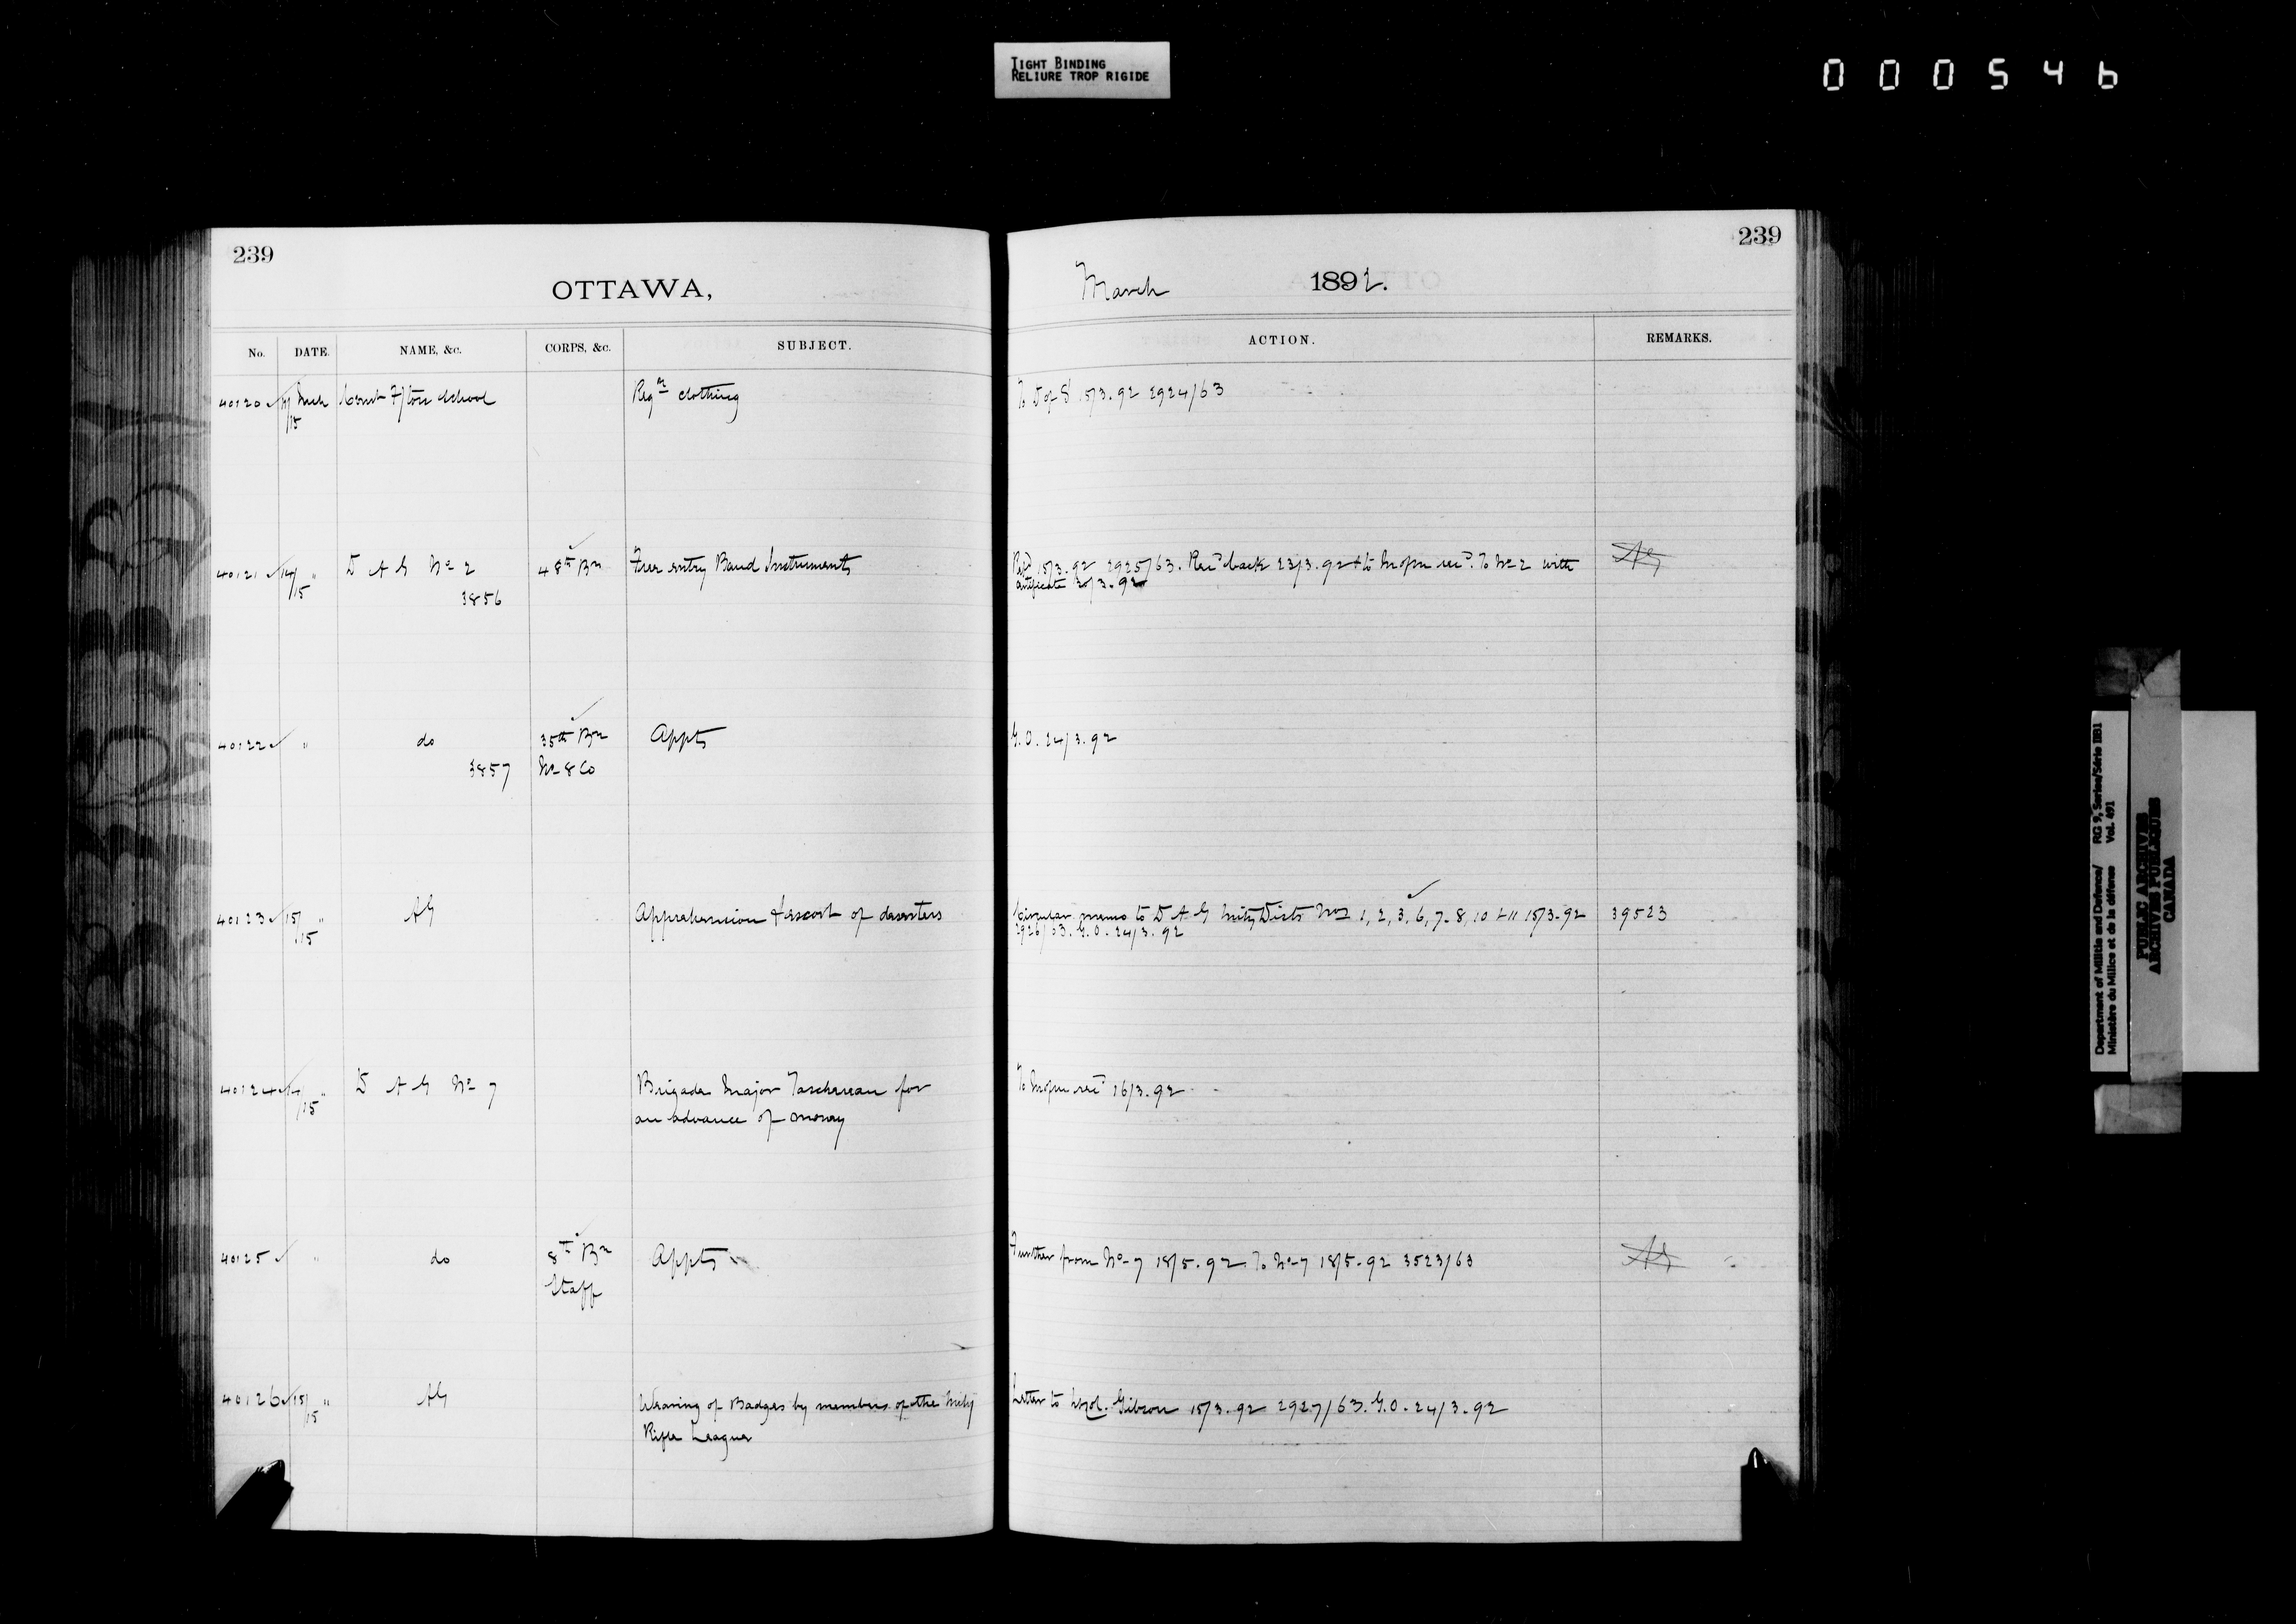 TIGHT BINDING
RELIURE TROP RIGIDE
000546
239
OTTAWA,
No. DATE. NAME, &c. CORPS, &c. SUBJECT.
40120 Mch Comt F/ton School Regn clothing
/15
40121 14/ " D A G No 2 48th Bn Free entry Band Instruments
/15
3856
40122 " do 35th Bn Appts
3857 No 8 Co
40123 15/ " AG Apprehension & escort of deserters
/15
40124 14/ " D A G No 7 Brigade Major Taschereau for
/15 an advance of money
40125 " do 8th Bn Appts
Staff
40126 15/ " AG Wearing of Badges by members of the Mily
/15 Rifle League
239
March 1892.
ACTION. REMARKS.
To D of S 15/3.92 2924/63
15/3.92 2925/63. Recd back 23/3.92 & to recd. To No 2 with
certificate 30/3.92
G.O. 24/3.92
Circular memo to D A G Mily Dists Nos 1, 2, 3, 6, 7, 8, 10 & 11 15/3.92 39523
2926/63. G.O. 24/3.92
To 16/3.92
Further from No 7 18/5.92. To No 7 18/5.92 3523/63
Letter to Lt Col. Gibson 15/3.92 2927/63. G.O. 24/3.92
Department of Militia and Defence/ RG 9, Series/Série IIB1
Ministère du Milice et de la défence Vol. 491
PUBLIC ARCHIVES
ARCHIVES PUBLIQUES
CANADA